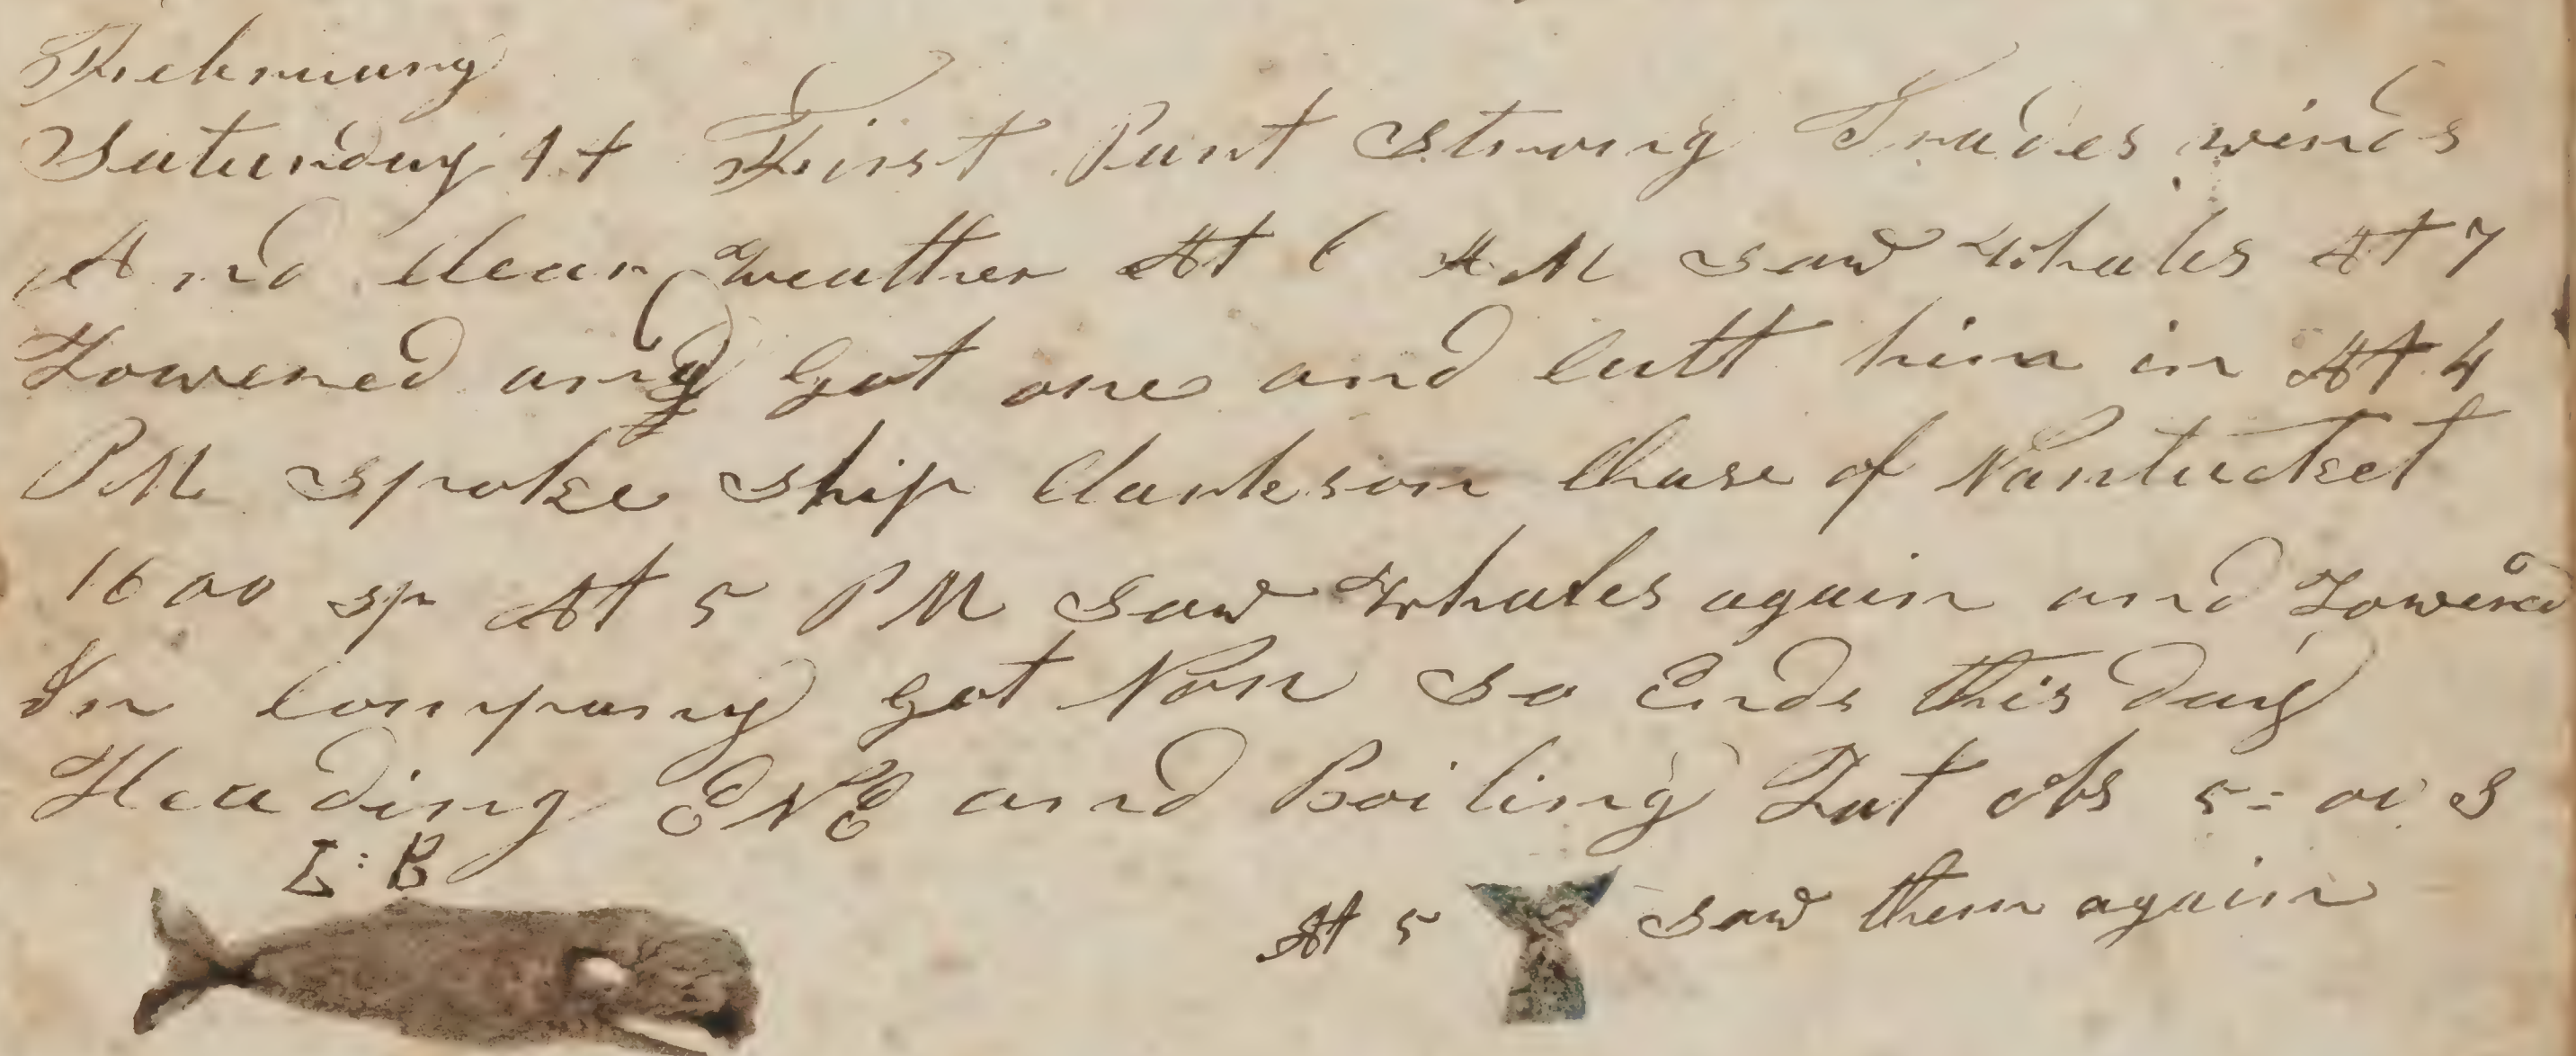 Februuary
Saturday 1t First Part Strong Trades winds
And clear weather At 6 A M saw whales At 7
Lowered and Got one and Cutt him in At 4
PM Spoke Ship Clarkson Chase of Nantucket
1600 sp At 5 PM Saw Whales again and Lowered
In Company got Non So Ends this day
Heading ENE and Boiling Lat obs 5=01 S
L:B
At 5 saw them again